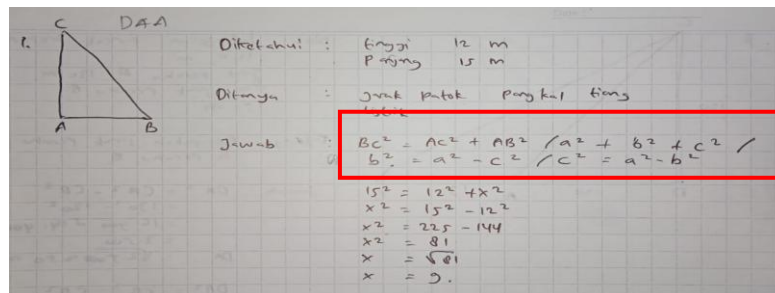 DAA
C
1.
A B
Diketahui : tinggi 12 m
Panjang 15 m
Ditanya : Jarak patok pangkal tiang
Jawab : BC² = AC² + AB² / a² + b² + c² /
b² = a² - c² / c² = a² - b²
15² = 12² + x²
x² = 15² - 12²
x² = 225 - 144
x² = 81
x = √81
x = 9.